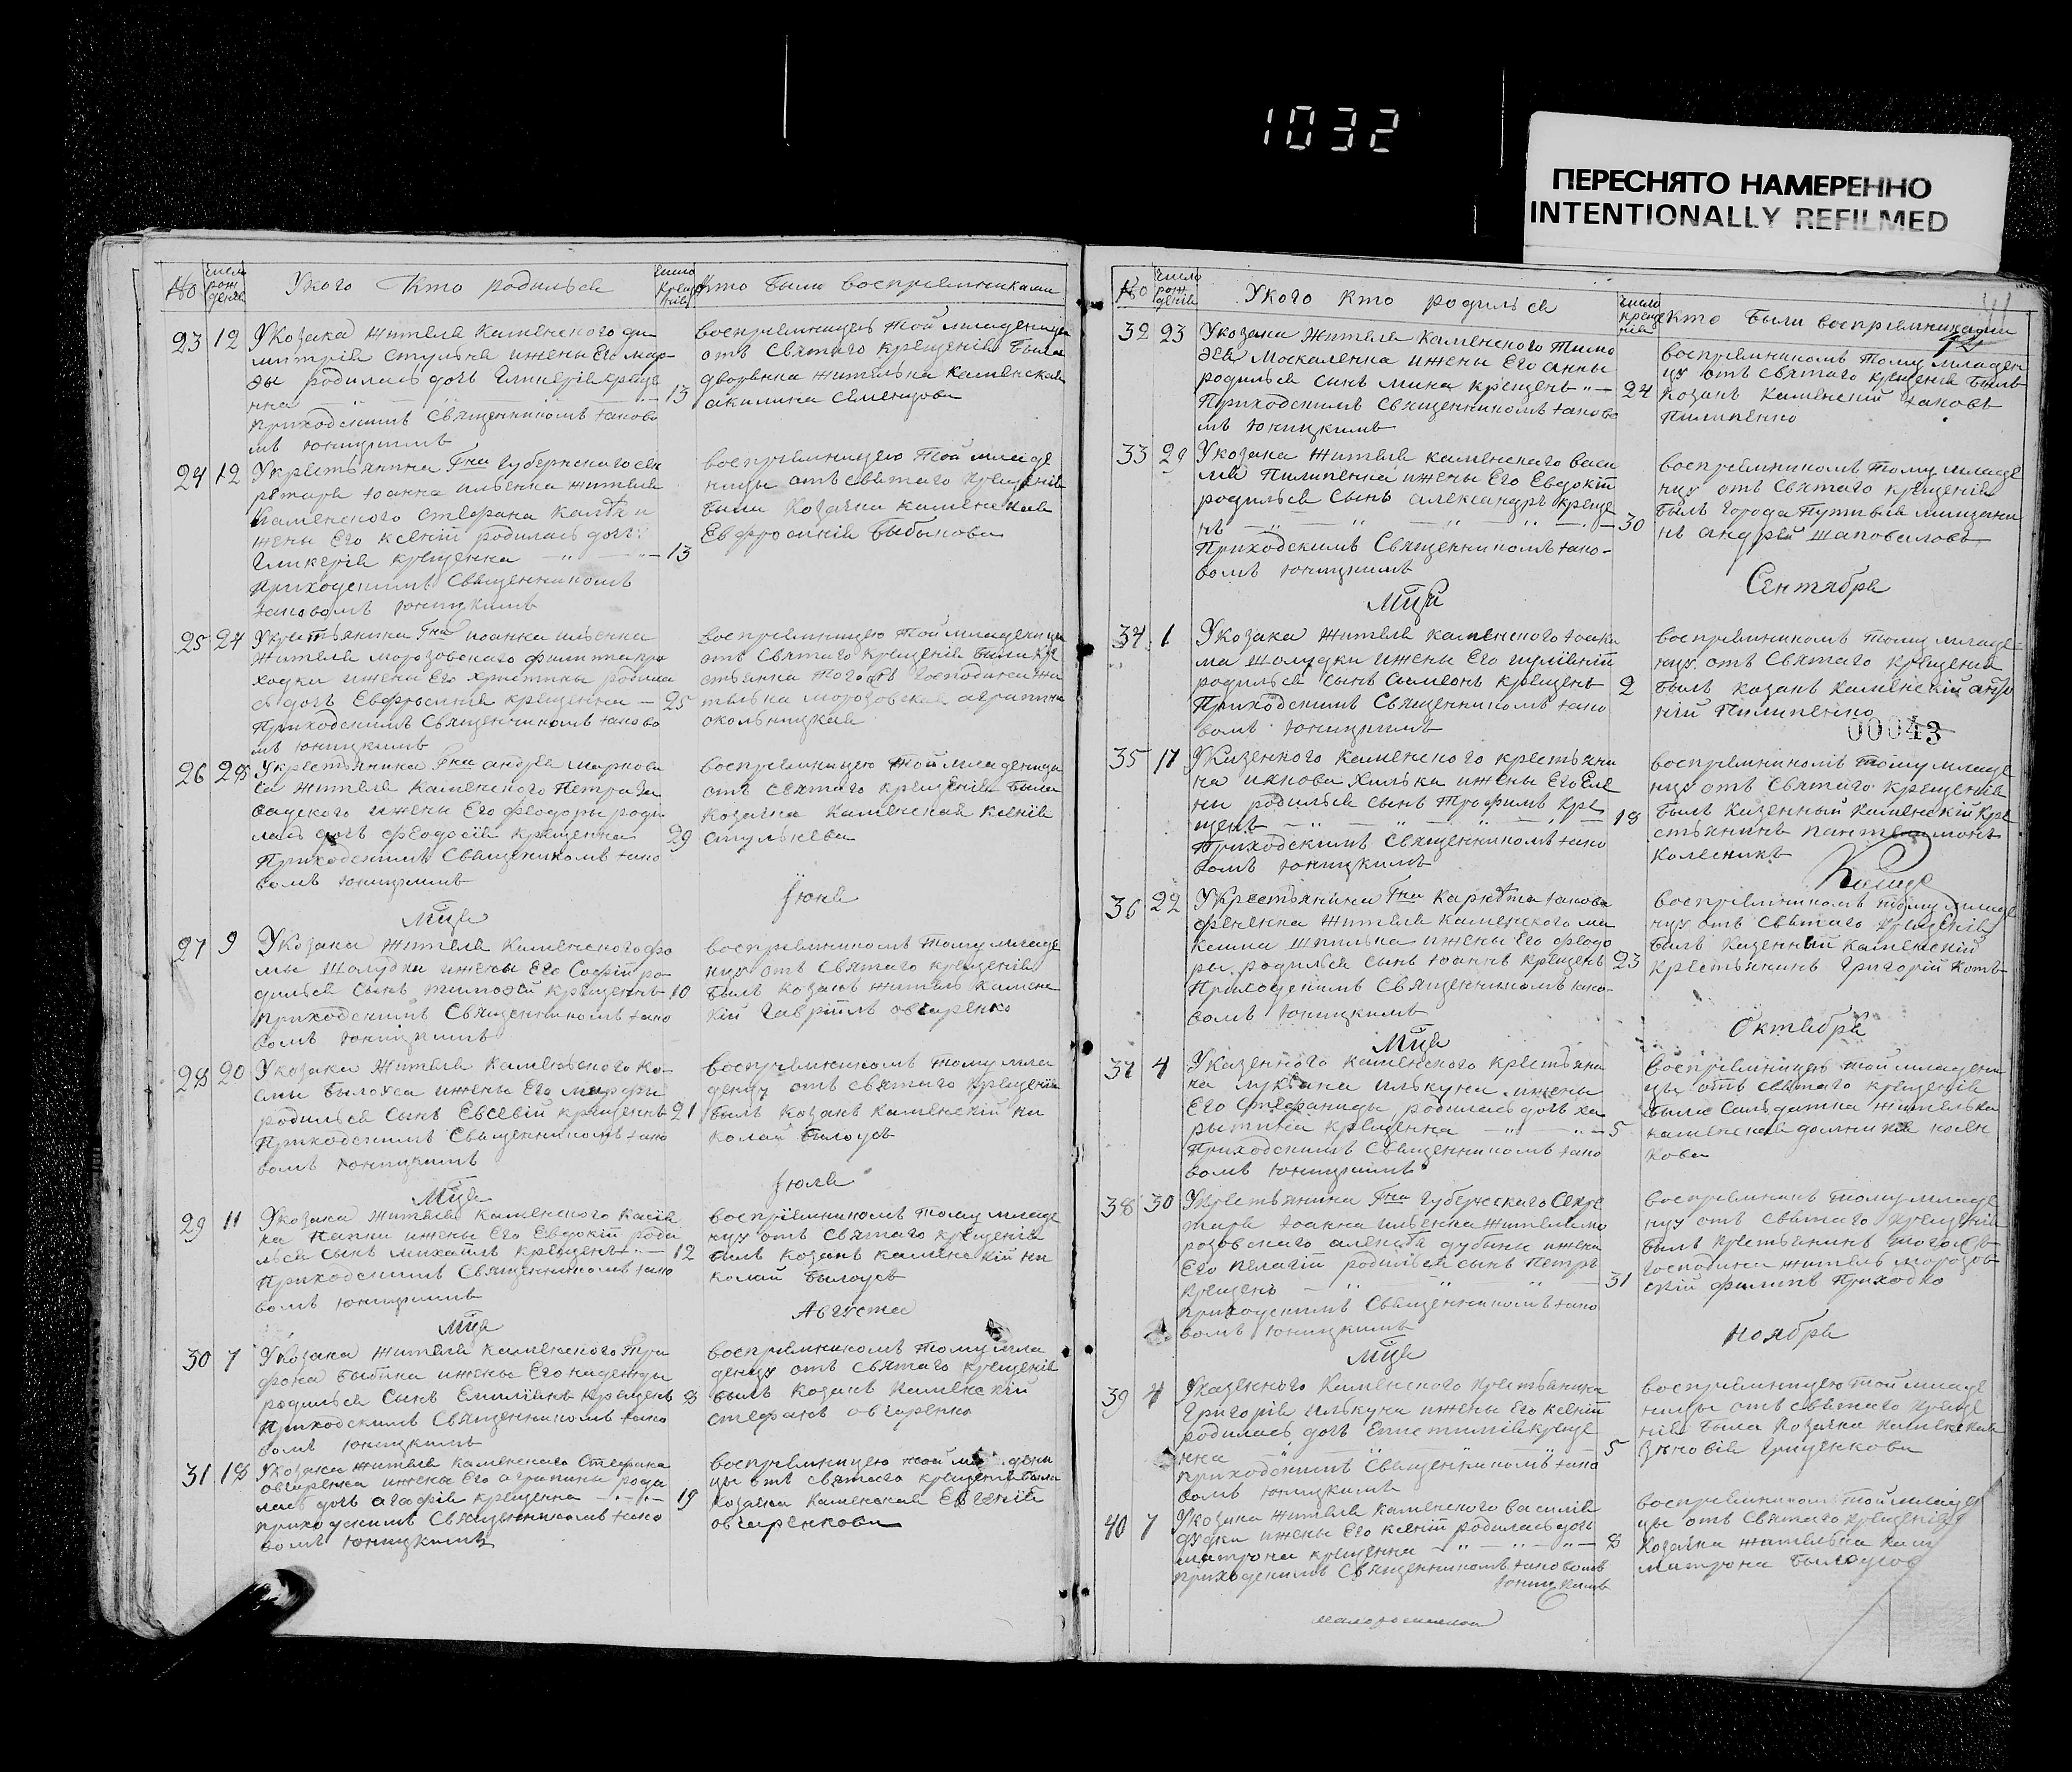 1032
ПЕРЕСНЯТО НАМЕРЕННО
INTENTIONALLY REFILMED
№ число рождения Укого кто родилься число крещения кто были восприемниками
23 12 Укозака жителя каменского ди
митрія стульнева ижены Его мар-
фы родилась дочь Гликерія креще
нна 13
приходскимъ Священникомъ Іаково
мъ Юницкимъ
восприемницею той младеницы
отъ Святаго крещенія была
дворянка жителька каменская
акилина Семенцова
24 12 Укрестьянина Гна Губернского сек
ретаря Іоанна ильенка жителя
каменского стефана и
жены Его ксеніи родилась дочь
Гликерія крещенна 13
приходскимъ Священникомъ
Іаковомъ Юницкимъ
восприемницею той младе
ницы отъ святаго крещенія
была козачка каменская
Евфросинія бибикова
25 24 Укрестьянина Гна иоанна ильенка
жителя морозовского филиппа при
ходки ижены Его христины родила
сь дочь Евфросинія крещенна 25
Приходскимъ Священникомъ Іаково
мъ Юницкимъ
восприемницею той младеницы
отъ Святаго крещенія была кре
стьянка того жъ Господина жи
телька морозовская агрипина
окольницкая
26 28 Укрестьянина Гна андрея маркови
ча жителя каменского Петра
ижены Его феодоры роди
лась дочь феодосія крещенна 29
Приходскимъ Священникомъ Іако
вомъ Юницкимъ
восприемницею той младеницы
отъ Святаго крещенія была
козачка каменская ксенія
стульнева
Мця Іюня
27 9 Укозака жителя каменского фо
мы шолудки ижены Его Софіи ро-
дилься сынъ тимофей крещенъ 10
приходскимъ Священникомъ Іако
вомъ Юницкимъ
восприемникомъ тому младе
нцу отъ Святаго крещенія
былъ козакъ житель каменс
кій Гавріилъ овчаренко
28 20 Укозака жителя каменского ко-
смы билоуса ижены Его марфы
родилься сынъ Евсевій крещенъ 21
Приходскимъ Священникомъ Іако
вомъ Юницкимъ
восприемникомъ тому мла
денцу отъ святаго крещенія
былъ козакъ каменскій ни
колай билоусъ
Мця Іюля
29 11 Укозака жителя каменского
ижены Его Евдокіи роди
лься сынъ михаилъ крещенъ 12
Приходскимъ Священникомъ Іако
вомъ Юницкимъ
восприемникомъ тому младе
нцу отъ Святаго крещенія
былъ козакъ каменскій ни
колай билоусъ
Мця Августа
30 7 Укозака жителя каменского три
фона ижены Его надежды
родилься сынъ Емиліянъ крещенъ 8
Приходскимъ Священникомъ Іако
вомъ Юницкимъ
восприемникомъ тому мла
денцу отъ Святаго крещенія
былъ козакъ каменскій
стефанъ овчаренко
31 18 Укозака жителя каменского Стефана
овчаренка ижены Его агрипины роди
лась дочь агафія крещенна 19
приходскимъ Священникомъ Іако
вомъ Юницкимъ
восприемницею той младени
цы отъ святаго крещенія была
козачка каменская Евгенія
овчаренкова
41
№ число рожденія Укого кто родилься число крещенія кто были восприемниками
32 23 Укозака жителя каменского тимо
фея москаленка ижены Его анны
родилься сынъ мина крещенъ 24
Приходскимъ Священникомъ Іаково
мъ Юницкимъ
восприемникомъ тому младен
цу отъ святаго крещенія былъ
козакъ каменскій Іаковъ
пилипенко
33 29 Укозака жителя каменского васи
лія пилипенка ижены Его Евдокіи
родилься сынъ александръ креще
нъ 30
Приходскимъ Священникомъ Іако-
вомъ Юницкимъ
восприемникомъ тому младе
нцу отъ Святаго крещенія
былъ города Путивля мищани
нъ андрей шаповаловъ
Мця Сентября
34 1 Укозака жителя каменского Іоаки
ма шолудки ижены Его
родилься сынъ Симеонъ крещенъ 2
Приходскимъ Священникомъ Іако
вомъ Юницкимъ
восприемникомъ тому младе
нцу отъ Святаго крещенія
былъ козакъ каменскій
пилипенко
00043
35 17 Указенного каменского крестьяни
на иакова хилька ижены Его Еле
ны родилься сынъ трофимъ кре
щенъ 18
Приходскимъ Священникомъ Іако
вомъ Юницкимъ
восприемникомъ тому младе
нцу отъ Святаго крещенія
былъ казенный каменскій кре
стьянинъ пантелимонъ
колесникъ
36 22 Укрестьянина Гна Іакова
фененка жителя каменского ма
ксима шпилька ижены Его феодо
ры родилься сынъ Іоаннъ крещенъ 23
Приходскимъ Священникомъ Іако-
вомъ Юницкимъ
восприемникомъ тому младе
нцу отъ святаго крещенія
былъ казенный каменскій
крестьянинъ Григорій котъ
Мця Октября
37 4 Указенного каменского крестьяни
на лукіана илькуна ижены
Его Стефаниды родилась дочь ха
ритина крещенна 5
Приходскимъ Священникомъ Іако
вомъ Юницкимъ
восприемницею той младени
цы отъ святаго крещенія
была салдатка жителька
каменская
38 30 Укрестьянина Гна Губернского Секре
таря Іоанна ильенка жителя мо
розовского алексія дубины ижены
Его пелагіи родилься сынъ Петръ
крещенъ 31
приходскимъ Священникомъ Іако
вомъ Юницкимъ
восприемникъ тому младе
нцу отъ святаго крещенія
былъ крестьянинъ того жъ
Господина житель морозов
скій филипъ Приходко
Мця Ноября
39 4 Указенного каменского крестьянина
Григорія илькуна ижены Его ксеніи
родилась дочь Епистимія креще
нна 5
приходскимъ Священникомъ Іако
вомъ Юницкимъ
восприемницею той младе
ницы отъ святаго креще
нія была козачка каменская
Зиновія Гриценкова
40 7 Укозака жителя каменского василія
дудки ижены Его ксеніи родилась дочь
матрона крещенна 8
приходскимъ Священникомъ Іаковомъ
Юницкимъ
той младе
цы отъ Святаго крещенія
козачка жителька
матрона